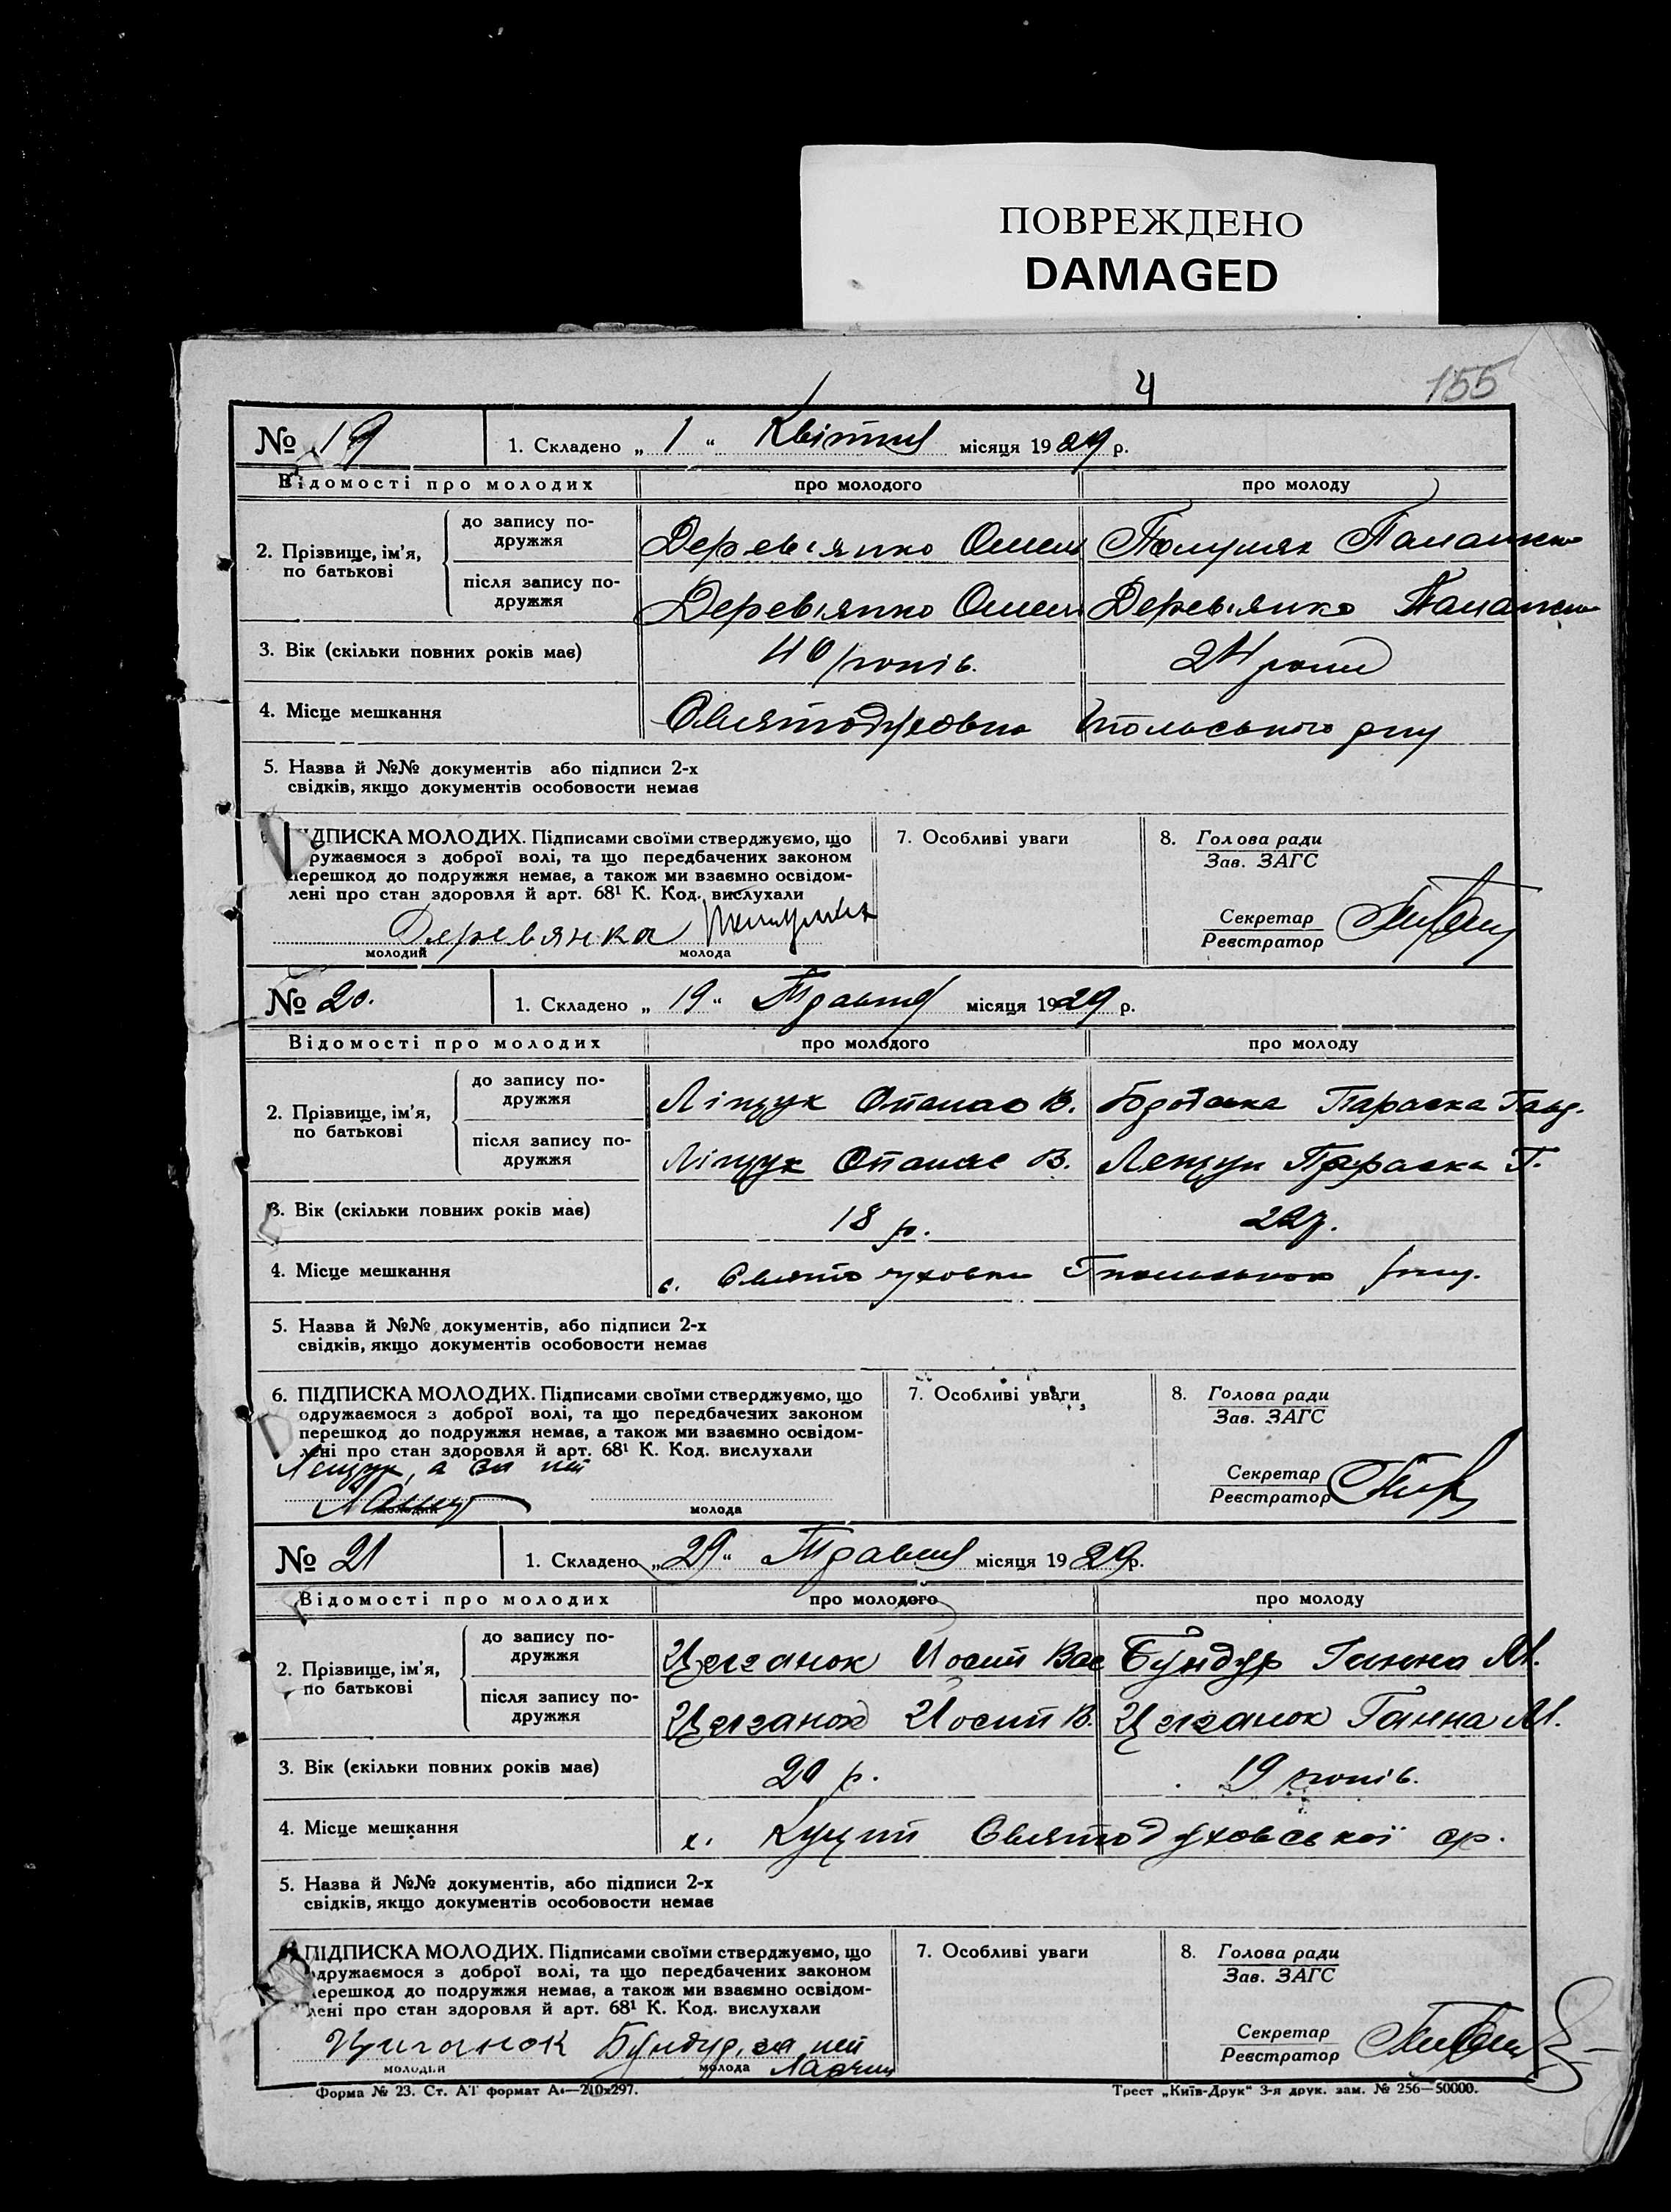 ПОВРЕЖДЕНО
DAMAGED
4
155
№ 19
1. Складено „ 1 “ Квітня місяця 1929 р.
Відомості про молодих
про молодого
про молоду
2. Прізвище, ім'я, по батькові
до запису по-
дружжя
Дерев'янко Омел
Паланн
після запису по-
дружжя
Дерев'янко Омел
Дерев'янко
3. Вік (скільки повних років має)
40 років.
24 роки
4. Місце мешкання
Святодуховка
польського р-ну
5. Назва й №№ документів або підписи 2-х
свідків, якщо документів особовости немає
ІДПИСКА МОЛОДИХ. Підписами своїми стверджуємо, що
ружаємося з доброї волі, та що передбачених законом
перешкод до подружжя немає, а також ми взаємно освідом-
лені про стан здоровля й арт. 68¹ К. Код. вислухали
Деревянка
молодий
молода
7. Особливі уваги
8. Голова ради
Зав. ЗАГС
Секретар
Реєстратор
№ 20.
1. Складено „ 19 “ Травня місяця 1929 р.
Відомості про молодих
про молодого
про молоду
2. Прізвище, ім'я,
по батькові
до запису по-
дружжя
Ліщук Опанас В.
Параска
після запису по-
дружжя
Ліщук Опанас В.
Лещук Параска Г.
3. Вік (скільки повних років має)
18 р.
22 р.
4. Місце мешкання
с. Святодуховки
5. Назва й №№ документів, або підписи 2-х
свідків, якщо документів особовости немає
6. ПІДПИСКА МОЛОДИХ. Підписами своїми стверджуємо, що
одружаємося з доброї волі, та що передбачених законом
перешкод до подружжя немає, а також ми взаємно освідом-
лені про стан здоровля й арт. 68¹ К. Код. вислухали
Лещук, а за неї
молодий
молода
7. Особливі уваги
8. Голова ради
Зав. ЗАГС
Секретар
Реєстратор
№ 21
1. Складено „ 29 “ Травня місяця 1929 р.
Відомості про молодих
про молодого
про молоду
2. Прізвище, ім'я,
по батькові
до запису по-
дружжя
Циганок Иосип Вас
Бундур Ганна М.
після запису по-
дружжя
Циганок Иосип В.
Циганок Ганна М.
3. Вік (скільки повних років має)
20 р.
19 років.
4. Місце мешкання
х. Святодуховської ср.
5. Назва й №№ документів, або підписи 2-х
свідків, якщо документів особовости немає
ПІДПИСКА МОЛОДИХ. Підписами своїми стверджуємо, що
одружаємося з доброї волі, та що передбачених законом
перешкод до подружжя немає, а також ми взаємно освідом-
лені про стан здоровля й арт. 68¹ К. Код. вислухали
Циганок
Бундур, за неї
молодий
молода
7. Особливі уваги
8. Голова ради
Зав. ЗАГС
Секретар
Реєстратор
Форма № 23. Ст. АТ формат А₄—210х297.
Трест „Київ-Друк“ 3-я друк. зам. № 256—50000.